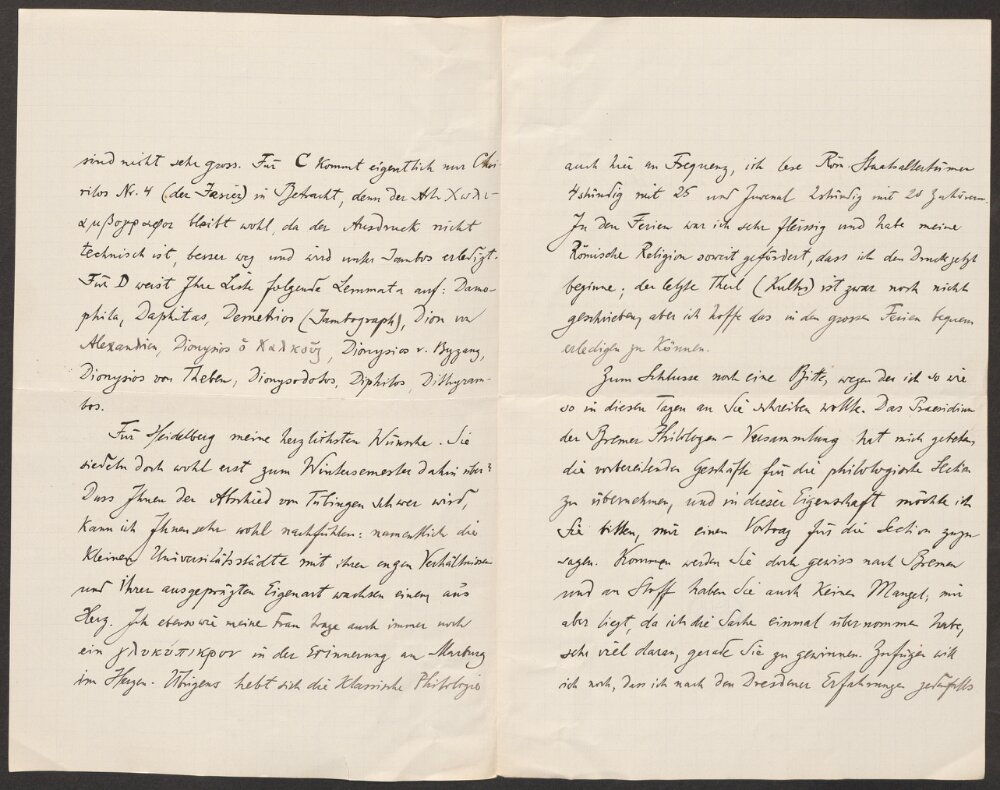 sind nicht sehr gross. Für C kommt eigentlich nur Choi-
rilos Nr. 4 (der Jasier) in Betracht, denn der Art. Χωλι-
αμβογραφοι bleibt wohl, da der Ausdruck nicht
technisch ist, besser weg und wird unter Iambos erledigt.
Für D weist Ihre Liste folgende Lemmata auf: Damo-
phila, Daphitas, Demetrios (Iambograph), Dion von
Alexandrien, Dionysios ὁ Χαλκοῦς, Dionysios v. Byzanz,
Dionysios von Theben, Dionysodotos, Diphilos, Dithyram-
bos.
Für Heidelberg meine herzlichsten Wünsche. Sie
siedeln doch wohl erst zum Wintersemester dahin über?
Dass Ihnen der Abschied von Tübingen schwer wird,
kann ich Ihnen sehr wohl nachfühlen: namentlich die
kleinen Universitätsstädte mit ihren engen Verhältnissen
und ihrer ausgeprägten Eigenart wachsen einem aus
Herz. Ich ebenso wie meine Frau trage auch immer noch
ein γλυκύπικρον in der Erinnerung an Marburg
im Herzen. Übrigens hebt sich die klassische Philologie
auch hier an Frequenz, ich lese Röm. Staatsaltertümer
4stündig mit 25 und Juvenal 2stündig mit 20 Zuhörern.
In den Ferien war ich sehr fleissig und habe meine
Römische Religion soweit gefördert, dass ich den Druck jetzt
beginne; der letzte Theil (Kultus) ist zwar noch nicht
geschrieben, aber ich hoffe das in den grossen Ferien bequem
erledigen zu können.
Zum Schlusse noch eine Bitte, wegen der ich so wie
so in diesen Tagen an Sie schreiben wollte. Das Praesidium
der Bremer Philologen-Versammlung hat mich gebeten,
die vorbereitenden Geschäfte für die philologische Section
zu übernehmen, und in dieser Eigenschaft möchte ich
Sie bitten, mir einen Vortrag für die Section zuzu-
sagen. Kommen werden Sie doch gewiss nach Bremen
und an Stoff haben Sie auch keinen Mangel; mir
aber liegt, da ich die Sache einmal übernommen habe,
sehr viel daran, gerade Sie zu gewinnen. Zufügen will
ich noch, dass ich nach den Dresdener Erfahrungen jedenfalls